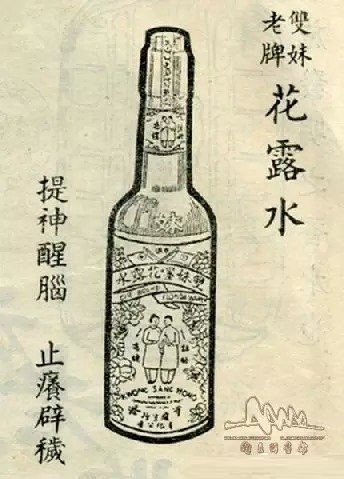 雙妹
老牌
花露水
提神醒腦 止癢辟穢
雙妹嚜花露水
KWONG SANG HONG